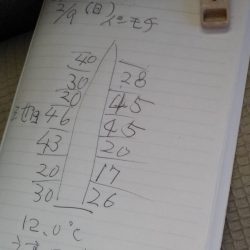 2/9 (日)
イシモチ
40
30 28
20 45
46 45
43 20
20 17
30 26
12.0℃